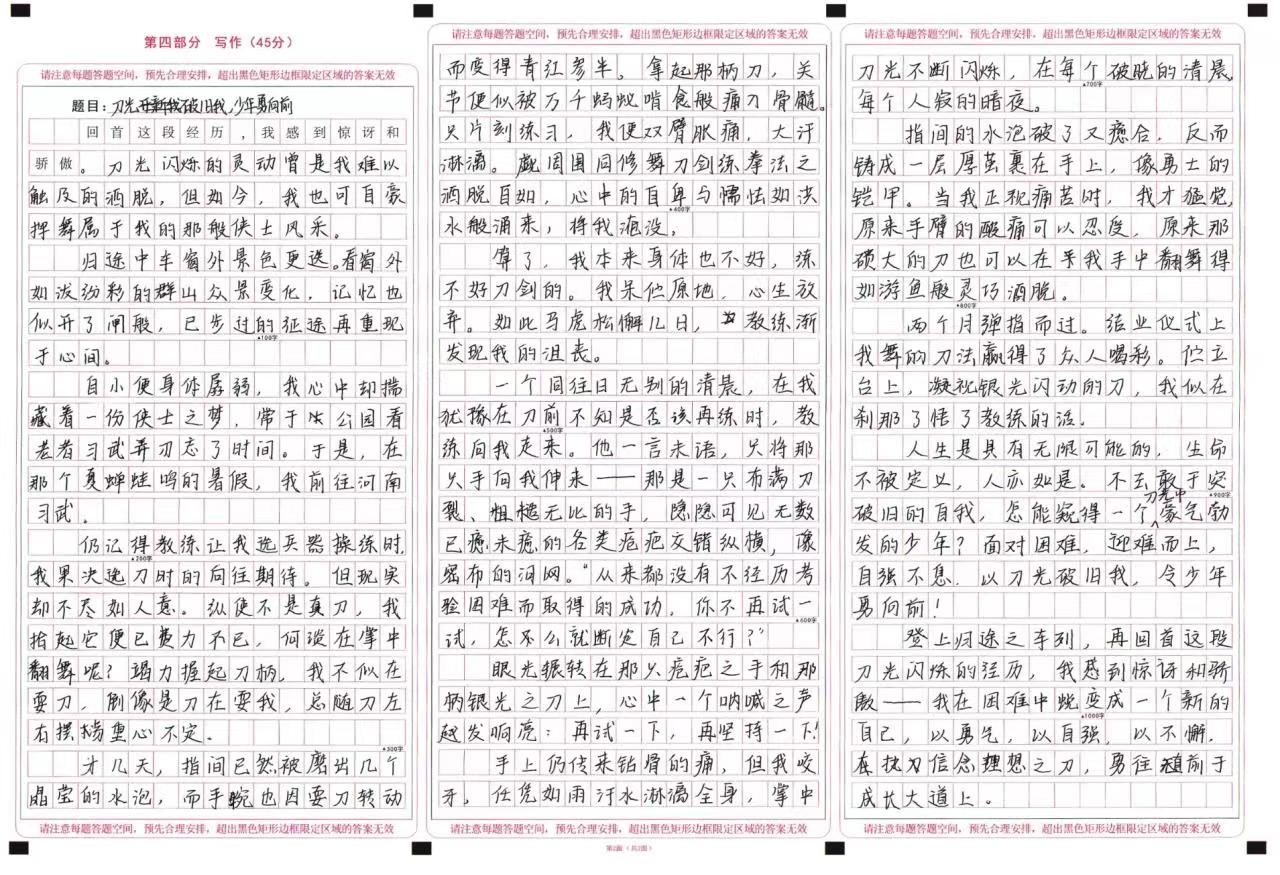 第四部分 写作（45分）
请注意每题答题空间，预先合理安排，超出黑色矩形边框限定区域的答案无效
题目：刀光破旧我，少年勇向前
回首这段经历，我感到惊讶和
骄傲。刀光闪烁的灵动曾是我难以
触及的洒脱，但如今，我也可自豪
挥舞属于我的那般侠士风采。
归途中车窗外景色更迭。看窗外
如泼纷彩的群山众景变化，记忆也
似开了闸般，已步过的征途再重现
▲100字
于心间。
自小便身体孱弱，我心中却揣
藏着一份侠士之梦，常于公园看
老者习武弄刀忘了时间。于是，在
那个夏蝉蛙鸣的暑假，我前往河南
习武。
仍记得教练让我选兵器操练时，
▲200字
我果决选刀时的向往期待。但现实
却不尽如人意。纵使不是真刀，我
抬起它便已费力不已，何谈在掌中
翻舞呢？竭力握起刀柄，我不似在
耍刀，倒像是刀在耍我，总随刀左
右摆揣重心不定。
▲300字
才几天，指间已然被磨出几个
晶莹的水泡，而手腕也因耍刀转动
请注意每题答题空间，预先合理安排，超出黑色矩形边框限定区域的答案无效
请注意每题答题空间，预先合理安排，超出黑色矩形边框限定区域的答案无效
而变得青红参半。拿起那柄刀，关
节便似被万千蚂蚁啃食般痛刀骨髓。
只片刻练习，我便双臂胀痛，大汗
淋漓。觑周围同修舞刀剑练拳法之
洒脱自如，心中的自卑与懦怯如洪
▲400字
水般涌来，将我淹没。
算了，我本来身体也不好，练
不好刀剑的。我呆伫原地，心生放
弃。如此马虎松懈几日，教练渐
发现我的沮丧。
一个同往日无别的清晨，在我
犹豫在刀前不知是否该再练时，教
▲500字
练向我走来。他一言未语，只将那
只手向我伸来——那是一只布满刀
裂、粗糙无比的手，隐隐可见无数
已愈未愈的各类疮疤交错纵横，像
密布的河网。“从来都没有不经历考
验困难而取得的成功，你不再试一
▲600字
试，怎么就断定自己不行？”
眼光辗转在那只疮疤之手和那
柄银光之刀上，心中一个呐喊之声
越发响亮：再试一下，再坚持一下！
手上仍传来钻骨的痛，但我咬
牙，任凭如雨汗水淋漓全身，掌中
请注意每题答题空间，预先合理安排，超出黑色矩形边框限定区域的答案无效
第2面（共2面）
请注意每题答题空间，预先合理安排，超出黑色矩形边框限定区域的答案无效
刀光不断闪烁，在每个破晓的清晨，
▲700字
每个人寂的暗夜。
指间的水泡破了又愈合，反而
铸成一层厚茧裹在手上，像勇士的
铠甲。当我正视痛苦时，我才猛觉，
原来手臂的酸痛可以忍受，原来那
硕大的刀也可以在我手中翻舞得
如游鱼般灵巧洒脱。
▲800字
两个月弹指而过。结业仪式上
我舞的刀法赢得了众人喝彩。伫立
台上，凝视银光闪动的刀，我似在
刹那了悟了教练的话。
人生是具有无限可能的，生命
不被定义，人亦如是。不去敢于突
▲900字
破旧的自我，怎能窥得一个刀光中豪气勃
发的少年？面对困难，迎难而上，
自强不息．以刀光破旧我，令少年
勇向前！
登上归途之车列，再回首这段
刀光闪烁的经历，我感到惊讶和骄
傲——我在困难中蜕变成一个新的
▲1000字
自己，以勇气，以自强，以不懈．
执信念理想之刀，勇往前于
成长大道上。
请注意每题答题空间，预先合理安排，超出黑色矩形边框限定区域的答案无效